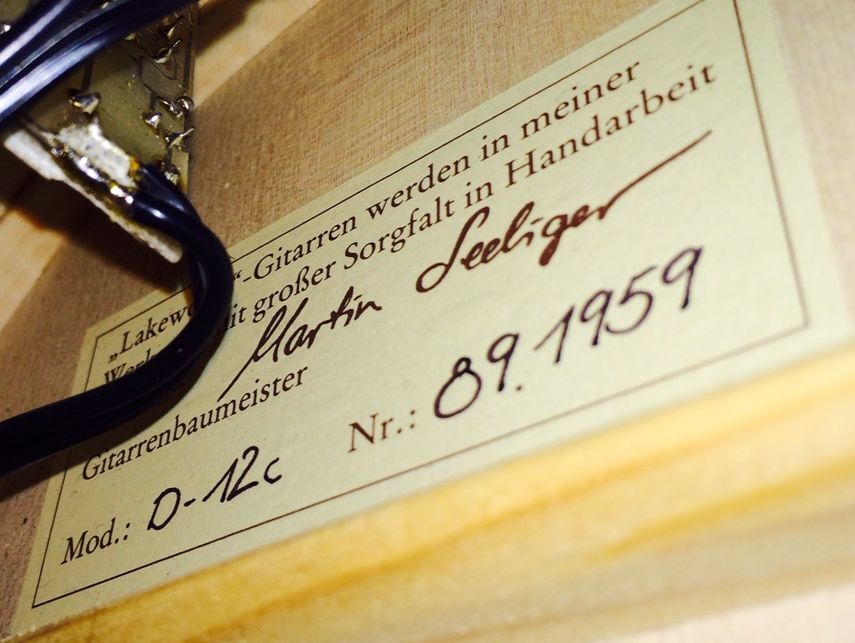 „Lakewo “-Gitarren werden in meiner
Werk it großer Sorgfalt in Handarbeit
Martin Seeliger
Gitarrenbaumeister
Mod.: D-12c Nr.: 89.1959